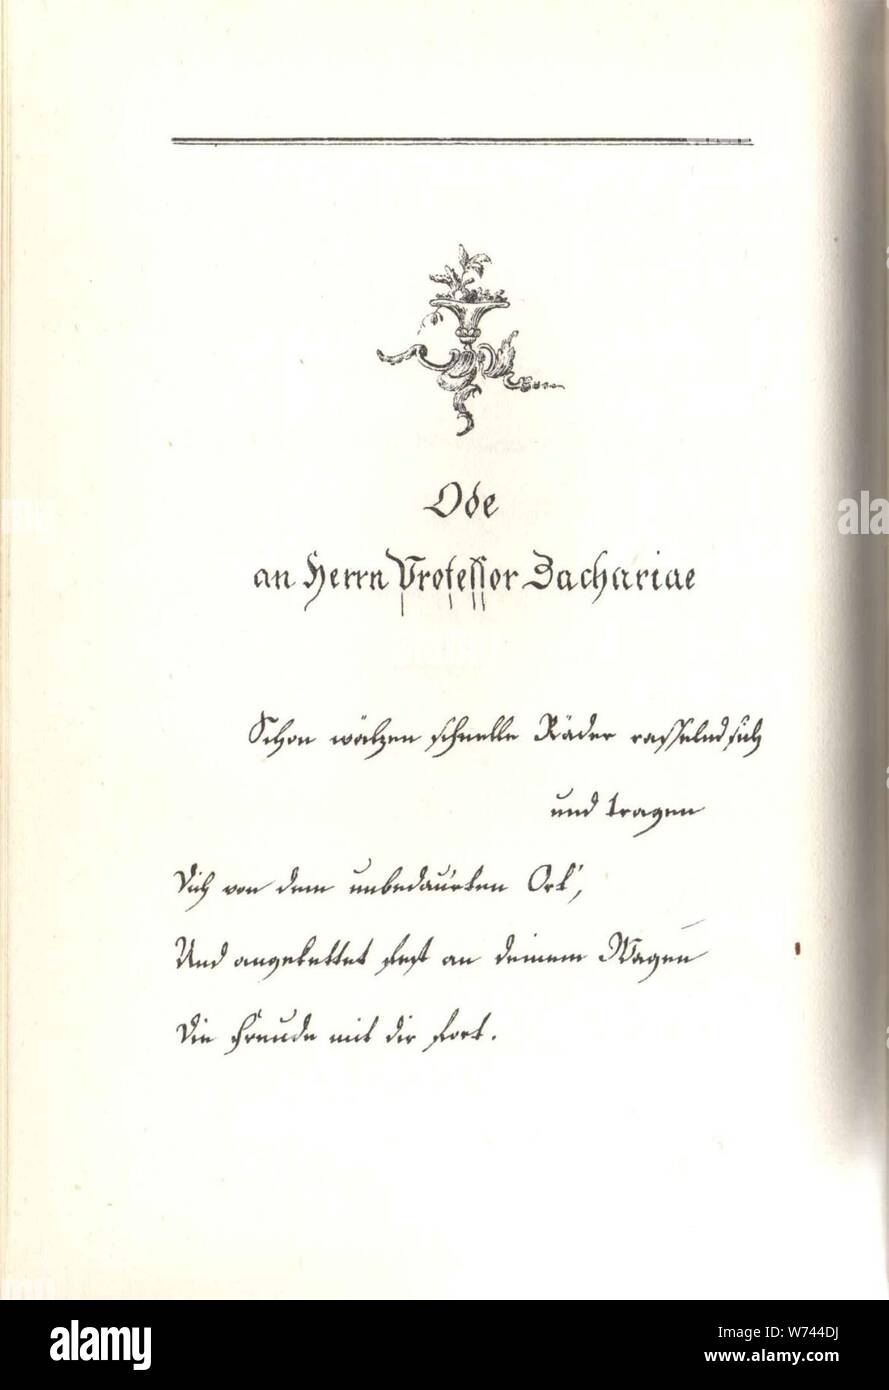 Ode
an Herrn Professor Zachariae
Schon wälzen schnelle Räder rasselnd sich
und tragen
Dich von dem unbedaurten Ort,
Und angekettet fest an deinem Wagen
Die Freude mit dir fort.
alamy
Image ID: W744DJ
www.alamy.com